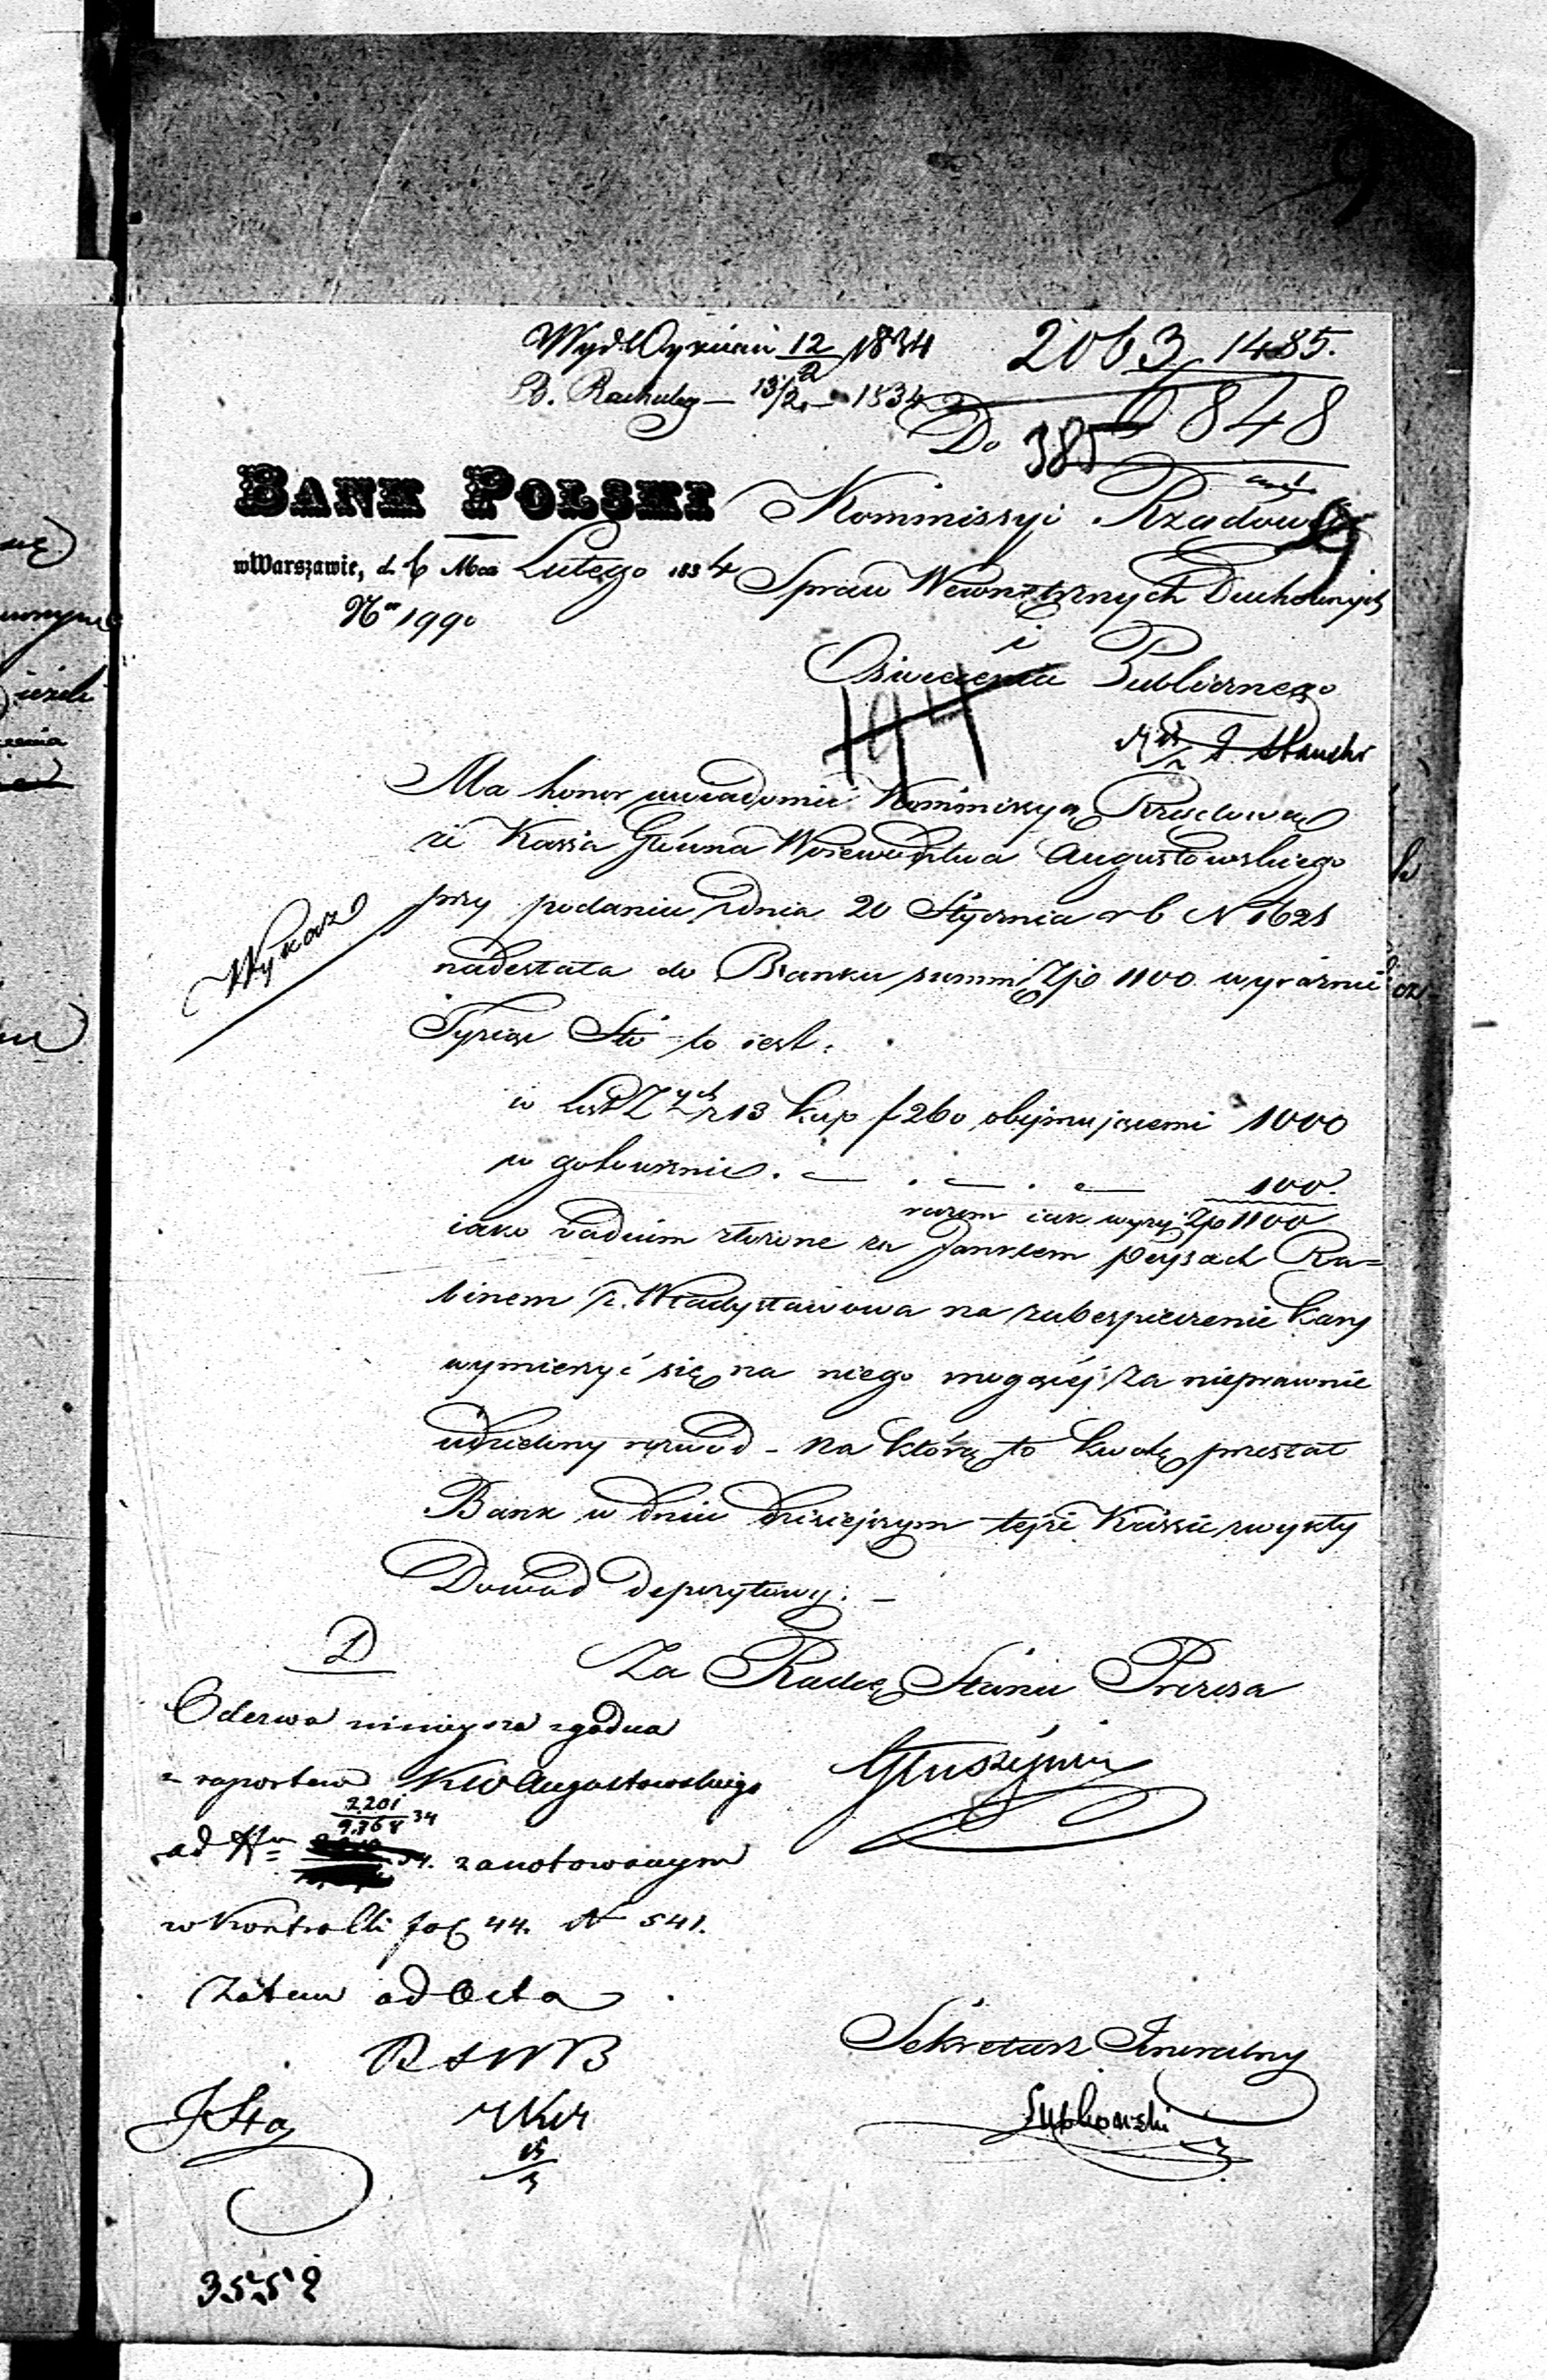 9
Wyd. Wyznań 12/2 1834
B. Rachuby — 13/2 — 1834
2063 1485.
6848
Do 385
BANK POLSKI
Kommissyi Rządowey
w Warszawie, d. 6 Mca Lutego 1834
Spraw Wewnętrznych Duchownych
Nr 1990
i
Oświecenia Publicznego
194
Ma honor uwiadomić Kommissyą Rządową
że Kassa Główna Wojewodztwa Augustowskiego
przy podaniu z dnia 20 Stycznia r b N 1621
Wykaz
nadesłała do Banku summę Złp 1100 wyraźnie
Tysiąc Sto to iest:
w List. Z ych z 13 kup f 260 obejmującemi 1000
w gotowiznie . — . — . — 100.
razem iak wyżej Złp 1100
iako vadium złożone za Janklem Peysach Ra=
binem z Władysławowa na zabespieczenie kary
wymierzyć się na niego mogącej za nieprawnie
udzielony rozwód – na którą to kwotę przesłał
Bank w dniu dzisiejszym tejże Kassie zwykły
Dowód depozytowy. —
D
Za Radcę Stanu Prezesa
Oderwa niniejsza zgodna
z raportem KW Augustowskiego
2201
9.368 34
ad Nr 34. zanotowanym
w Kontrolli fol 44. N 541.
Zatem ad Acta
Sekretarz Jeneralny
Łubkowski
15/3
3552